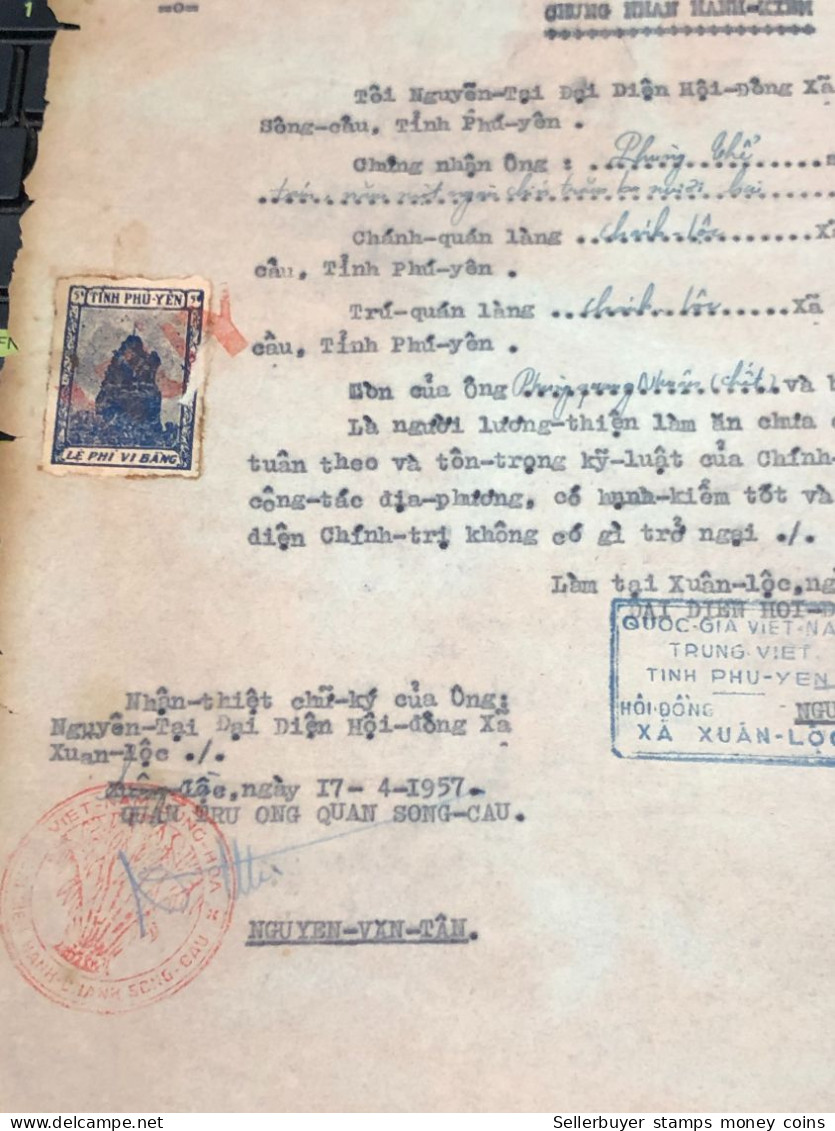 1
-o-
CHUNG NHAN HANH-KIEM
Tôi Nguyễn-Tại Đại Diện Hội-Đồng Xã
Sông-cầu, Tỉnh Phú-yên .
Chứng nhận Ông : Phùng Thế
Chánh-quán làng Chánh-Lộc Xã
cầu, Tỉnh Phú-yên .
Trú-quán làng Chánh-Lộc Xã
cầu, Tỉnh Phú-yên .
Con của Ông (chết) và b
Là người lương-thiện làm ăn chưa
tuân theo và tôn-trọng kỹ-luật của Chính-
công-tác địa-phương, có hạnh-kiểm tốt và
diện Chính-trị không có gì trở ngại ./.
Làm tại Xuân-lộc,ng
ĐẠI DIEN HOI-Đ
TỈNH PHÚ-YÊN
LỆ PHÍ VI BẰNG
QUỐC-GIA VIỆT-NA
TRUNG-VIỆT
TINH PHU-YEN
HỘI-ĐỒNG NGU
XÃ XUÂN-LỘC
Nhận-thiệt chữ-ký của Ông:
Nguyễn-Tại Đại Diện Hội-đồng Xã
Xuan-lộc ./.
Lộc,ngày 17- 4-1957-
QUẬN TRU ONG QUAN SONG-CAU.
VIỆT-NAM CỘNG-HÒA
HÀNH-CHÁNH SONG-CAU
NGUYEN-VĂN-TÂN.
Sellerbuyer stamps money coins